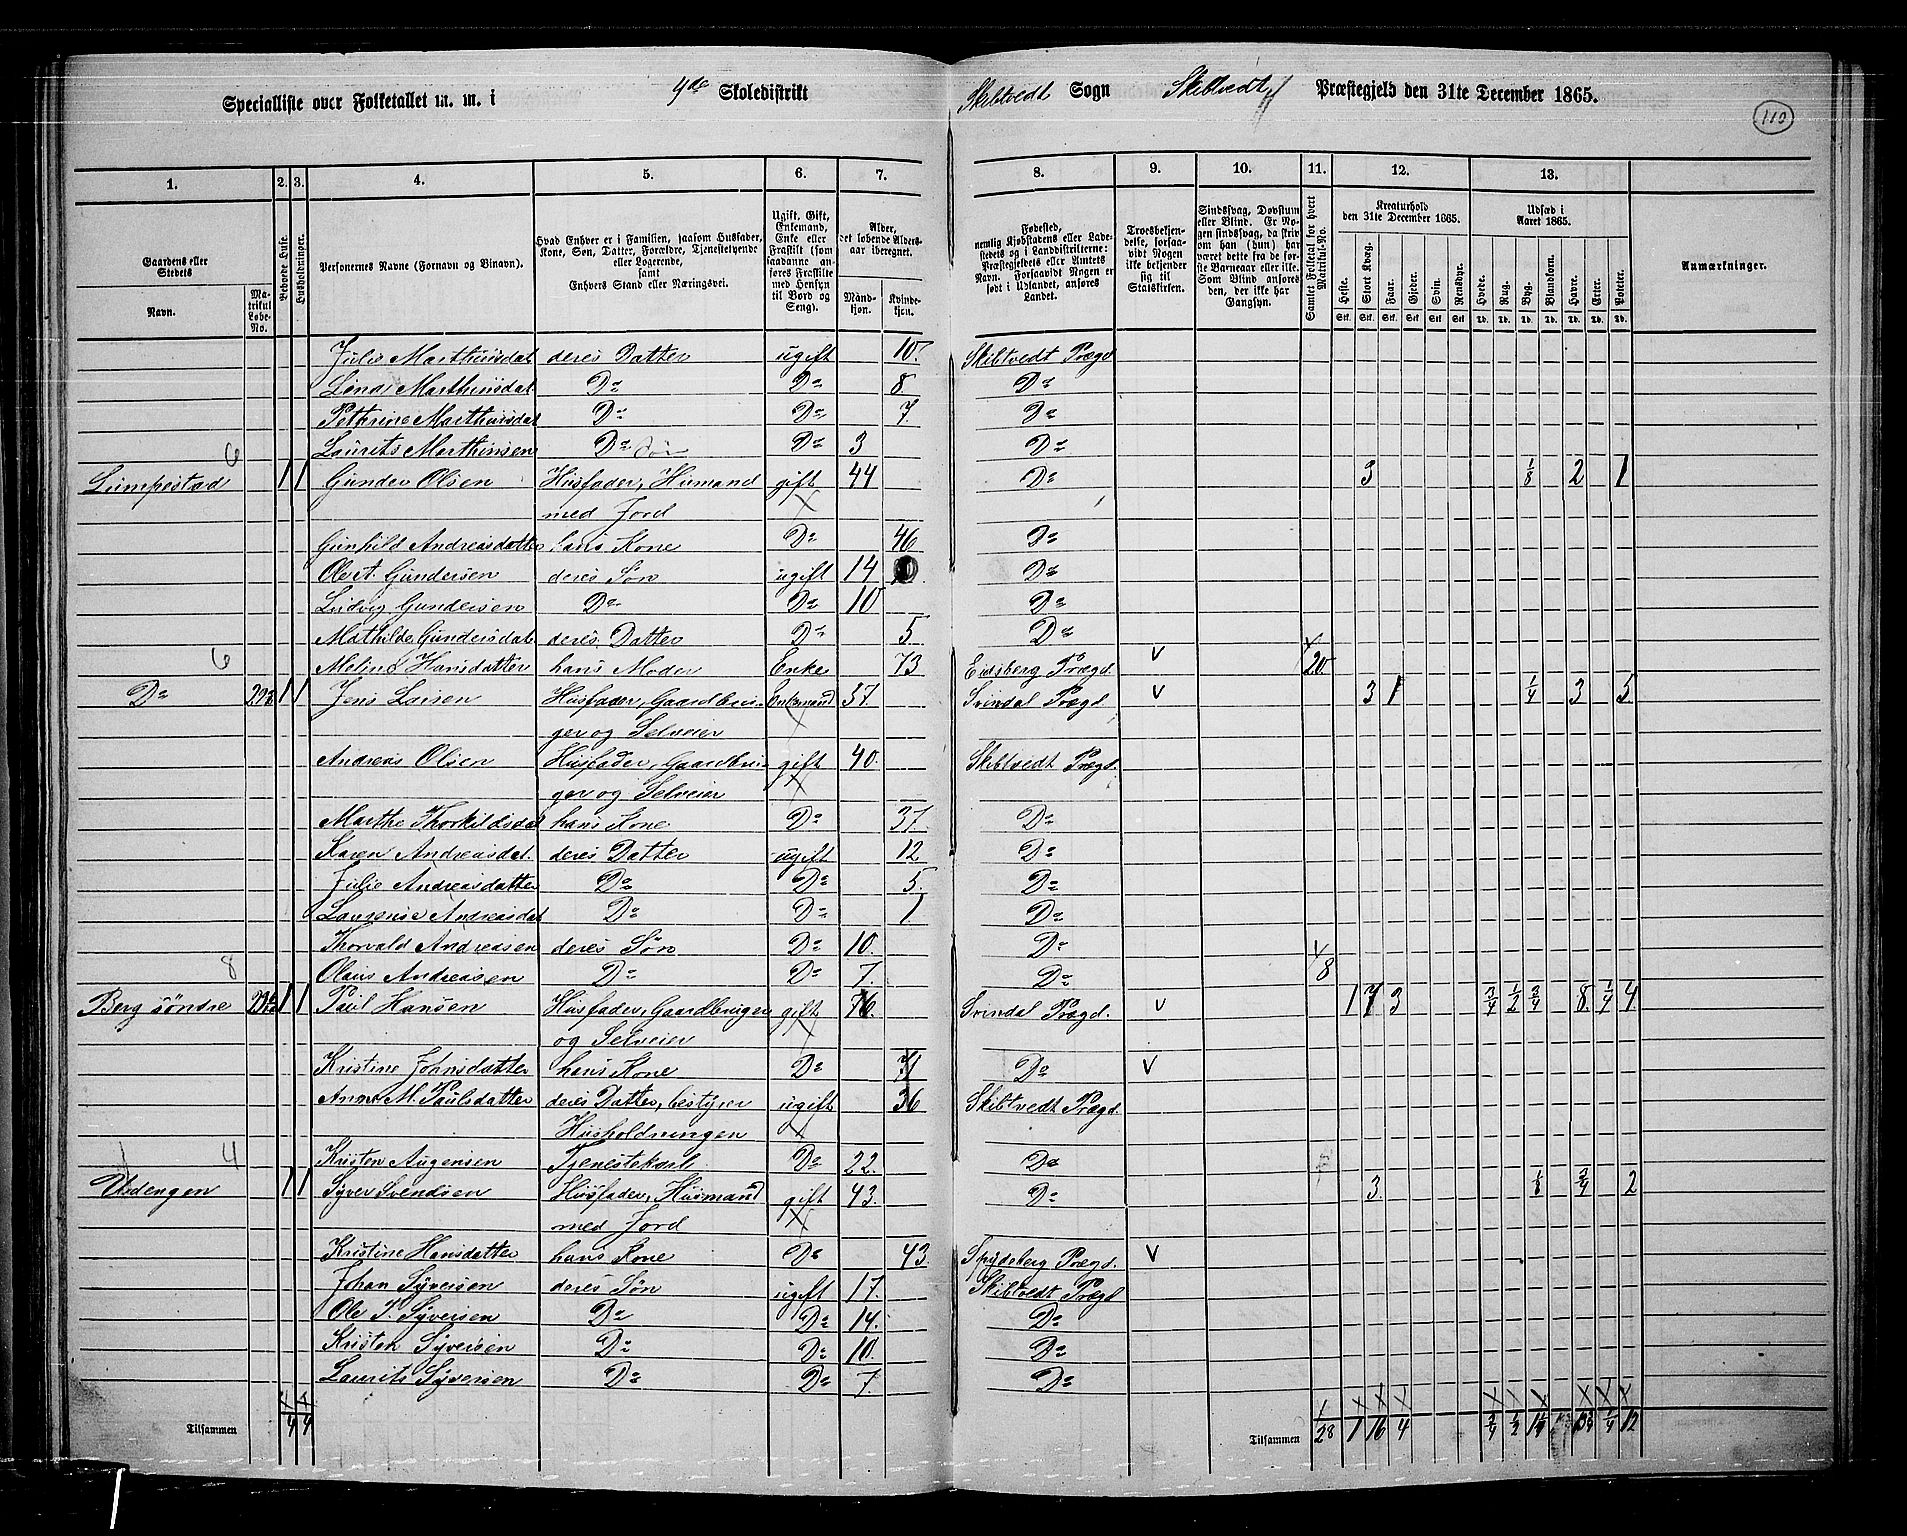 Specialliste over Folketallet m. m. i 4de Skoledistrikt Skibtvedt Sogn Skibtvedt Præstegjeld den 31te December 1865.
110
1. 2. 3. 4. 5. 6. 7. 8. 9. 10. 11. 12. 13.
Gaardens eller Stedets
Navn.
Matrikul Løbe-No.
Beboede Huse.
Husholdninger.
Personernes Navne (Fornavn og Binavn).
Hvad Enhver er i Familien, saasom Husfader, Kone, Søn, Datter, Forældre, Tjenestetyende eller Logerende, samt Enhvers Stand eller Næringsvei.
Ugift, Gift, Enkemand, Enke eller Fraskilt (som saadanne anføres Fraskilte med Hensyn til Bord og Seng).
Alder, det løbende Alders-aar iberegnet.
Mandkjøn. Kvindekjøn.
Fødested, nemlig Kjøbstadens eller Ladestedets og i Landdistrikterne: Præstegjeldets eller Amtets Navn. Forsaavidt Nogen er født i Udlandet, anføres Landet.
Troesbekjendelse, forsaavidt Nogen ikke bekjender sig til Statskirken.
Sindssvag, Døvstum eller Blind. Er Nogen sindssvag, da skriv om han (hun) har været dette fra de første Barneaar eller ikke. Som Blind anføres den, der ikke har Gangsyn.
Samlet Folketal for hvert Matrikul-No.
Kreaturhold den 31te December 1865.
Heste. Stort Kvæg. Faar. Gjeder. Svin. Rensdyr.
Udsæd i Aaret 1865.
Hvede. Rug. Byg. Blandkorn. Havre. Erter. Poteter.
Anmærkninger.
Julie Marthinsdat deres Datter ugift 10. Skibtvedt Prægd
Lina Marthinsdat. Do Do 8 Do
Petterine Marthinsdat Do Do 7. Do
6 Laurits Marthinsen Do Søn Do 3 Do
Lumpestad 1 1 Gunder Olsen Husfader, Husmand gift 44 Do 3 1/8 2 1
med Jord
Gunhild Andreasdatter hans Kone Do 46 Do
Ole A. Gundersen deres Søn ugift 14 Do
Ludvig Gundersen Do Do 10 Do
Mathilde Gundersdat. deres Datter Do 5 Do
6 Meline Hansdatter hans Moder Enke 73 Eidsberg Prægd. v 20
Do 1 1 Jens Larsen Husfader, Gaardbru- Enkemand 57. Svindal Prægd. v 3 1 1/4 3 5
ger og Selveier
Andreas Olsen Husfader, Gaardbru- gift 40. Skibtvedt Prægd.
ger og Selveier
Marthe Thorkildsdat hans Kone Do 37. Do
Karen Andreasdat. deres Datter ugift 12 Do
Julie Andreasdatter Do Do 5. Do
Laurense Andreasdat Do Do 1 Do
Thorvald Andreasen deres Søn Do 10. Do
8 Olaus Andreasen Do Do 7. Do 8
Berg søndre 1 1 Paul Hansen Husfader, Gaardbruger gift 76. Svindal Prægd. v 1 7 3 3/4 1/2 3/4 8. 1/4 4
og Selveier
Kristine Johnsdatter hans Kone Do 71 Do v
Anne M. Paulsdatter deres Datter, bestyrer ugift 36 Skibtvedt Prægd.
Husholdningen
4 Kristen Augensen Tjenestekarl Do 22. Do
Udengen 1 1 Syver Svendsen Husfader, Husmand gift 43. Do 3 1/8 3/4 2
med Jord
Kristine Hansdatter hans Kone Do 43. Spydeberg Prægd. v
Johan Syversen deres Søn ugift 17. Skibtvedt Prægd
Ole P. Syversen Do Do 14. Do
Kristen Syversen Do Do 10. Do
Laurits Syversen Do Do 7. Do
Tilsammen 4 4 Tilsammen 28 1 16 4 3/4 1/2 1/4 12